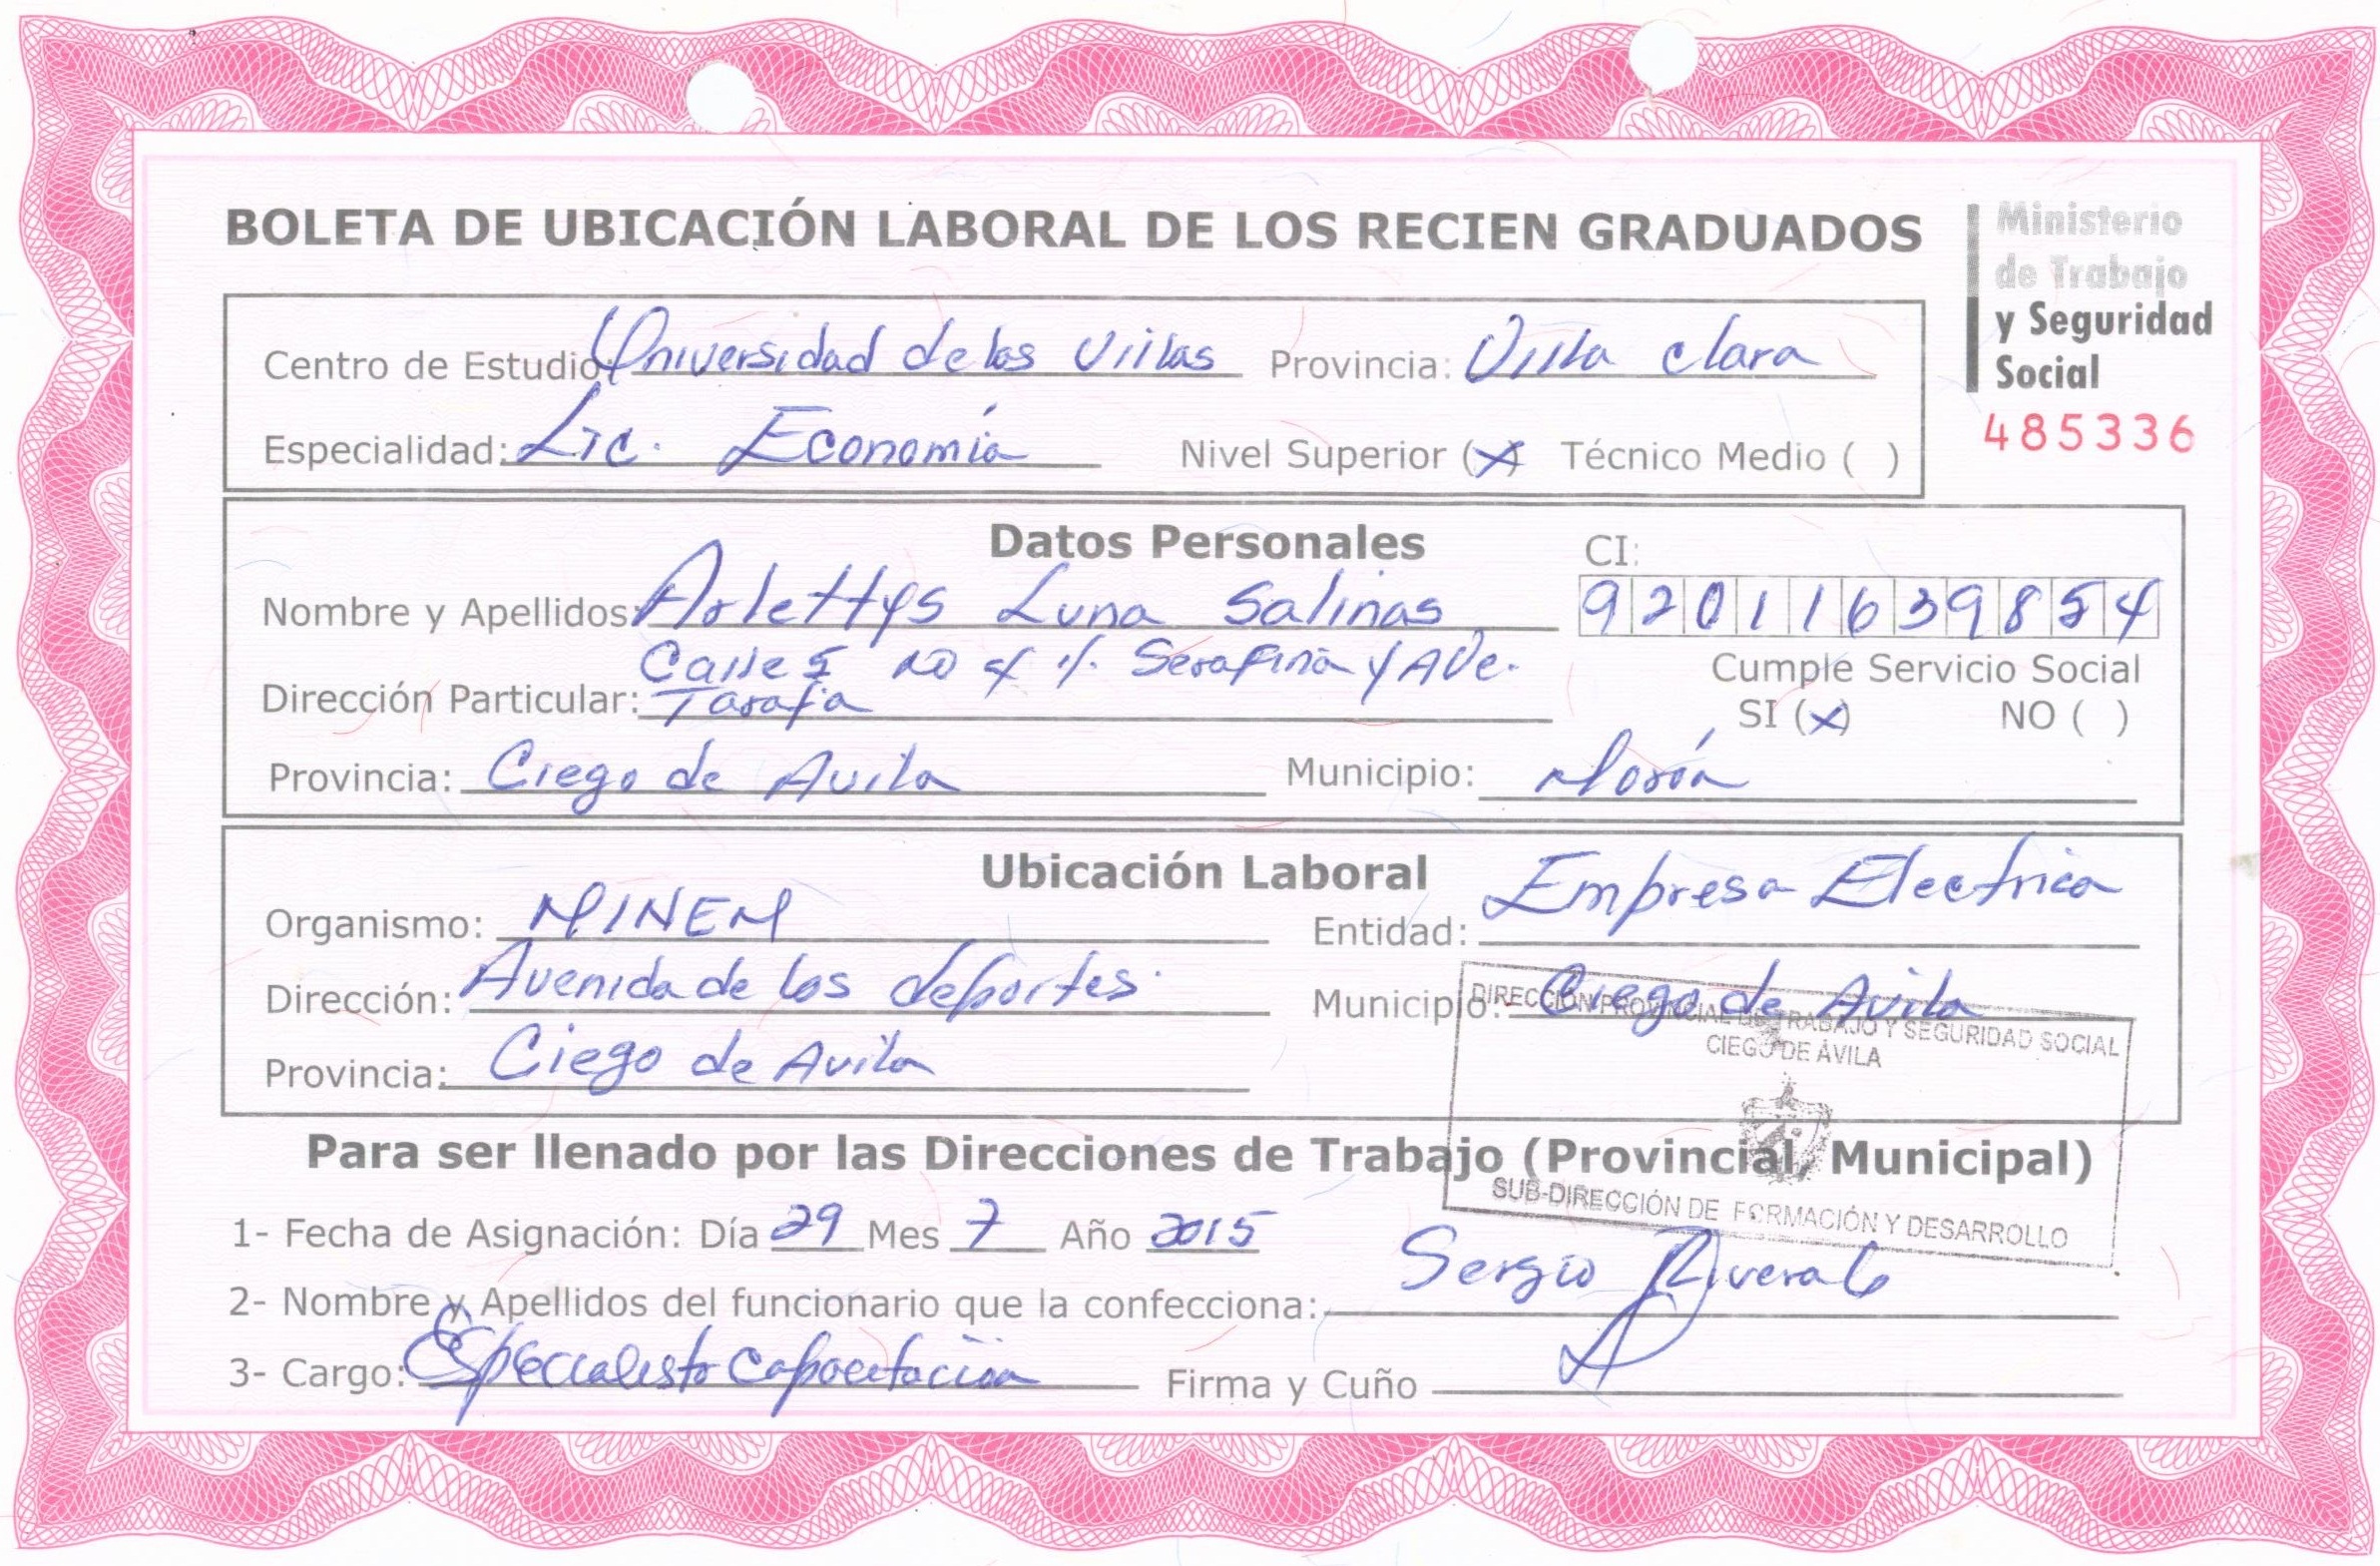 BOLETA DE UBICACIÓN LABORAL DE LOS RECIEN GRADUADOS
Ministerio
de Trabajo
y Seguridad
Social
485336
Centro de Estudio: Universidad de las Villas Provincia: Villa Clara
Especialidad: Lic. Economía Nivel Superior (X) Técnico Medio ( )
Datos Personales
CI:
Nombre y Apellidos: Arlettys Luna Salinas 92011639854
Calle 5 no 4 1/. Serafina y Ave.
Dirección Particular: Tarafa
Cumple Servicio Social
SI (X) NO ( )
Provincia: Ciego de Avila Municipio: Morón
Ubicación Laboral
Organismo: MINEM Entidad: Empresa Electrica
Dirección: Avenida de los deportes. Municipio: Ciego de Avila
Provincia: Ciego de Avila
DIRECCIÓN PROVINCIAL DE TRABAJO Y SEGURIDAD SOCIAL
CIEGO DE ÁVILA
Para ser llenado por las Direcciones de Trabajo (Provincial, Municipal)
SUB-DIRECCIÓN DE FORMACIÓN Y DESARROLLO
1- Fecha de Asignación: Día 29 Mes 7 Año 2015
2- Nombre y Apellidos del funcionario que la confecciona: Sergio
3- Cargo: Especialista Capacitación Firma y Cuño